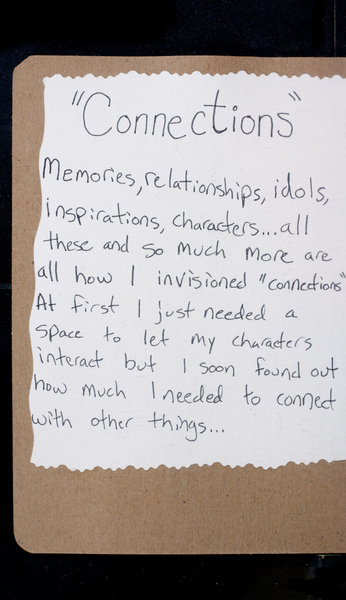 "Connections"
Memories, relationships, idols,
inspirations, characters...all
these and so much more are
all how I invisioned "connections"
At first I just needed a
space to let my characters
interact but I soon found out
how much I needed to connect
with other things...